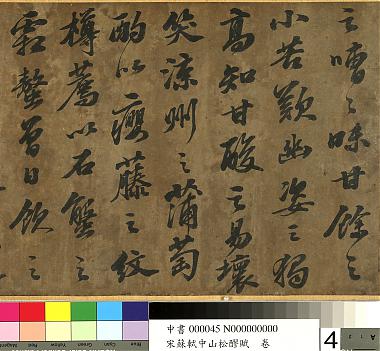 之嘈嘈味甘餘之
小苦歎幽姿之獨
高知甘酸之易壞
笑涼州之蒲萄
酌以癭藤之紋
樽薦以石蟹之
霜螯曾日飲之
申書 000045 N000000000
宋蘇軾中山松醪賦 卷
4